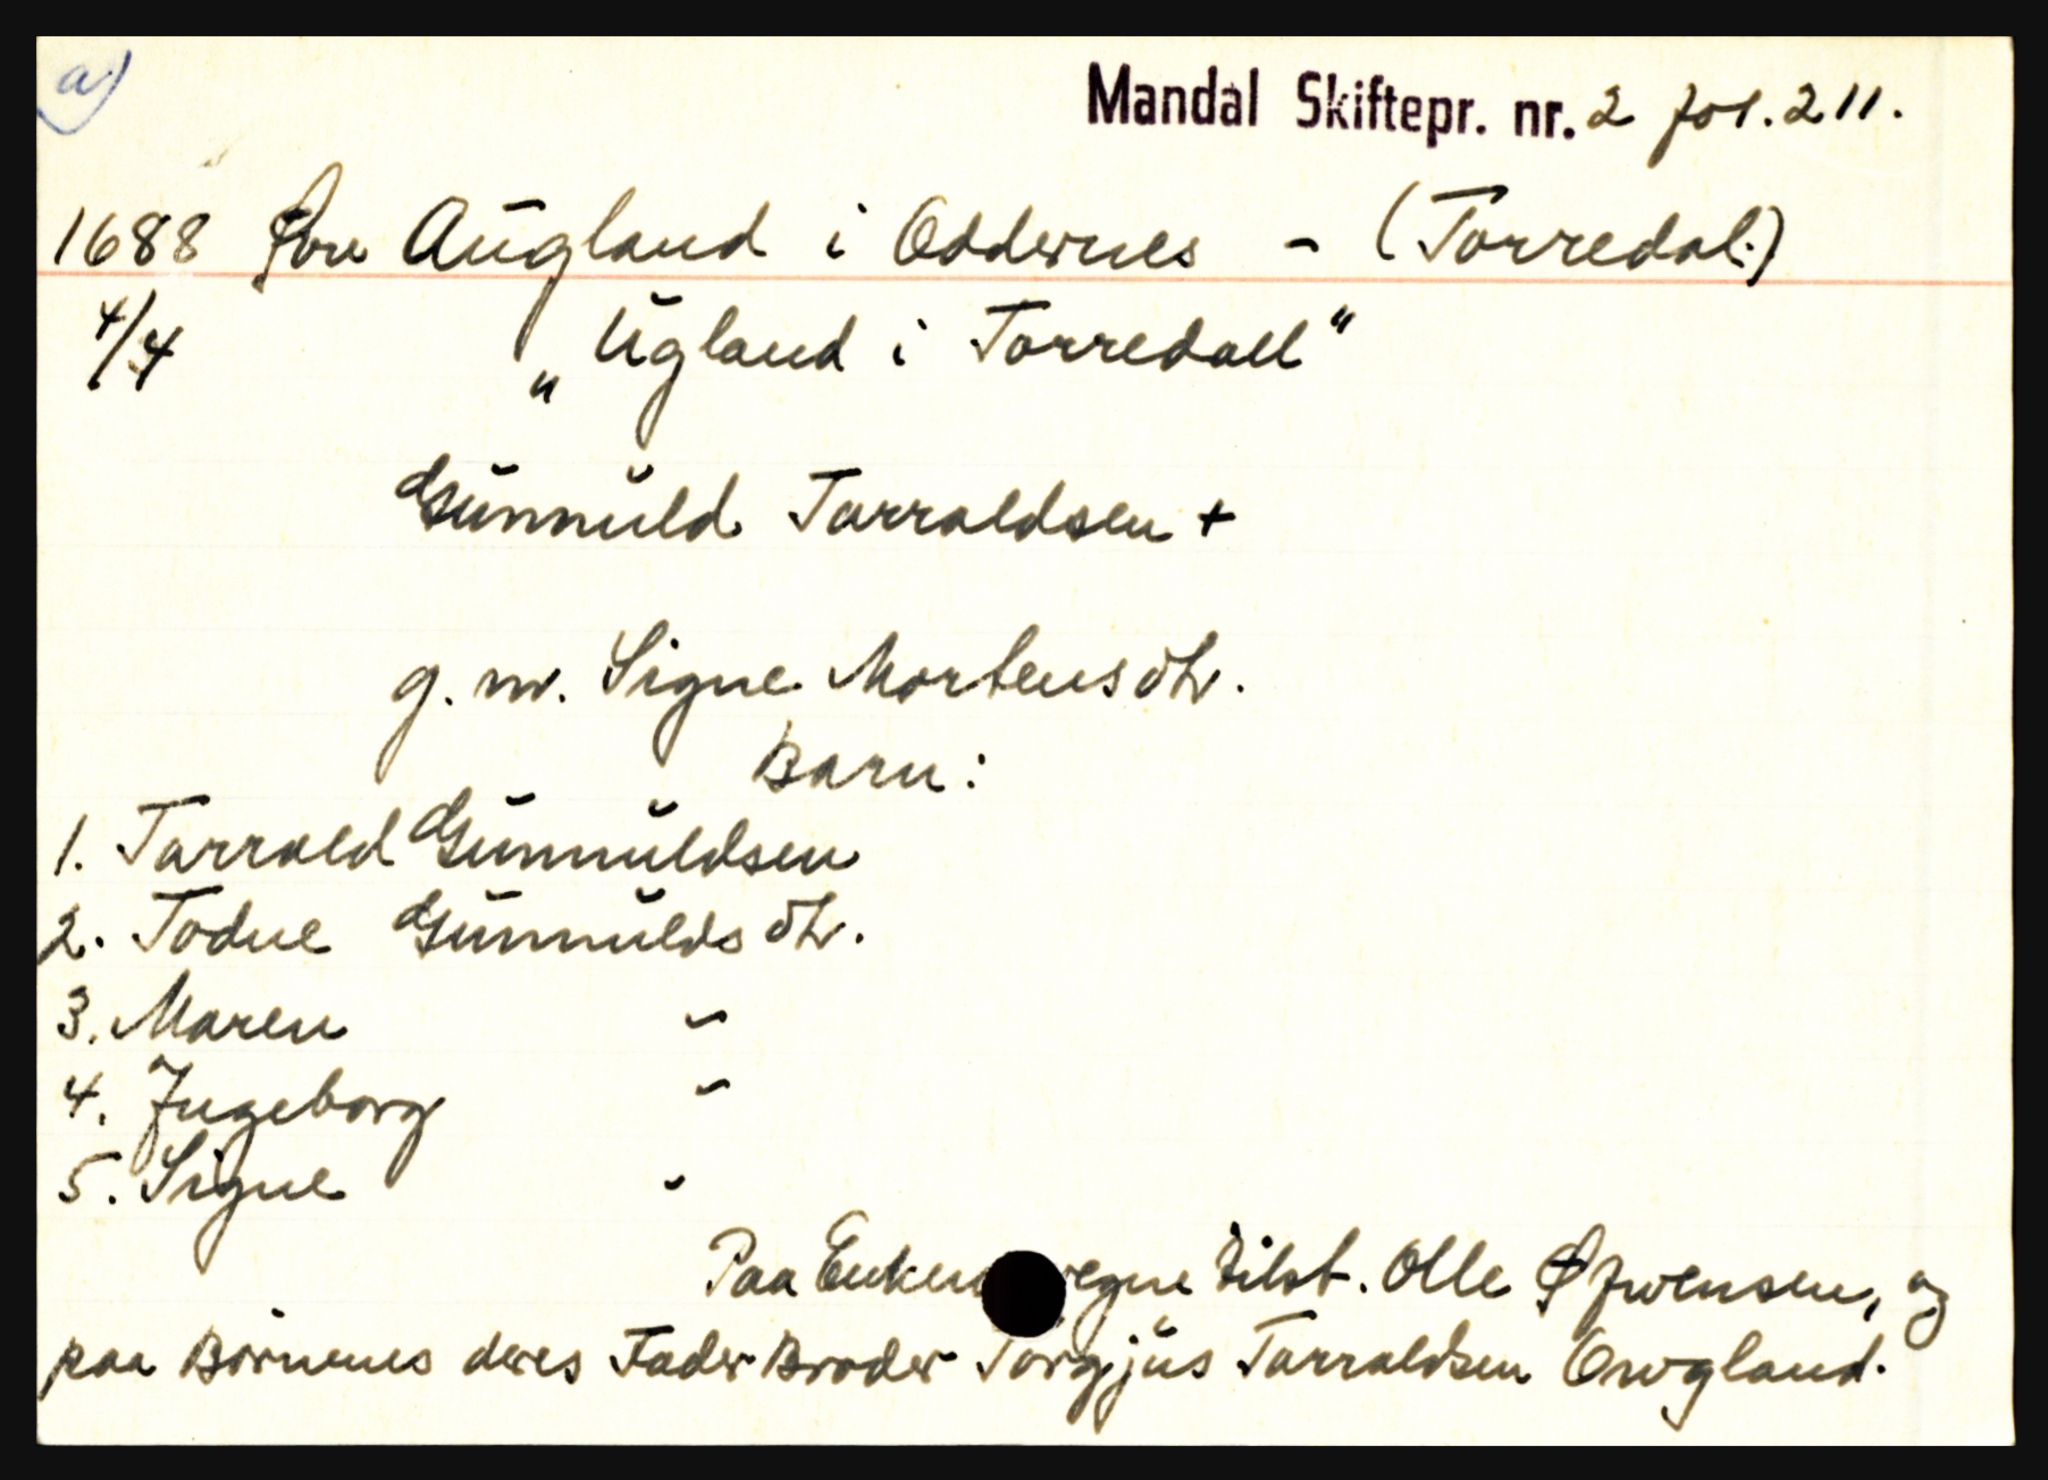 a)
Mandal Skiftepr. nr. 2 fol. 211.
1688 Øvre Augland i Oddernes - (Torredal.)
4/4 „Ugland i Torredall"
Gunnuld Tarraldsen +
g. m. Signe Mortensdtr.
Barn:
1. Tarrald Gunnuldsen
2. Todne Gunnuldsdtr.
3. Maren -
4. Ingeborg -
5. Signe -
Paa Enkens vegne tilst. Olle Øfwensen, og
paa Børnenes deres Fader Broder Torgjus Tarraldsen Owgland.